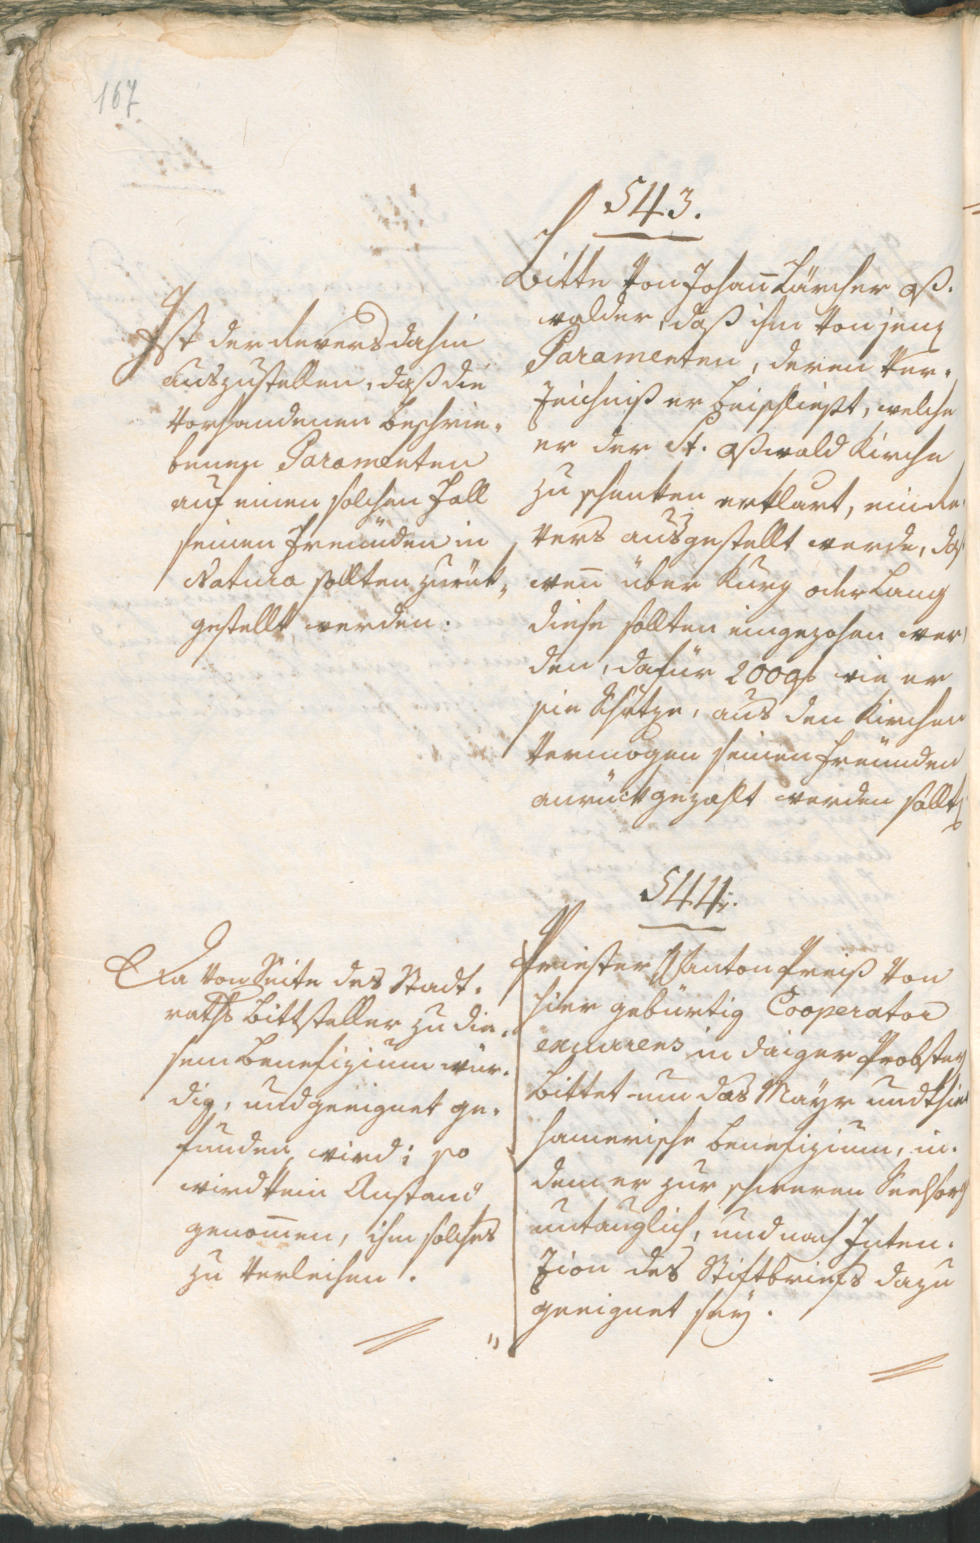 167
543.
Bitte von Johann Lärcher Oß-
walder, daß ihm von jenen
Paramenten, deren Ver-
zeichniß er beischließt, welche
er der St. Oßwald Kirche
zu schenken erklärt, ein Re
vers ausgestellt werde, daß
wenn über kurz oder lang
diese sollten eingezohen wer
den, dafür 200 f wie er
sie schätze, aus den Kirchen
Vermögen seinen Freünden
zurückgezahlt werden sollte
Ist der Revers dahin
auszustellen, daß die
vorhandenen beschrie-
benen Paramenten
auf einen solchen Fall
seinen Freünden in
Natura sollten zurük-
gestellt werden.
544.
Priester Anton Preiß von
hier gebürtig Cooperator
excurrens in daiger Probstey
bittet um das Mayr und
hamerische Benefizium, in-
dem er zur schweren Seelsorg
untauglich, und nach Inten-
zion des Stiftbriefs dazu
geeignet sey.
Da von Seite des Stadt-
raths Bittsteller zu die-
sem Benefizium wür-
dig, und geeignet ge-
funden wird; so
wird kein Anstand
genommen, ihm solches
zu verleihen.